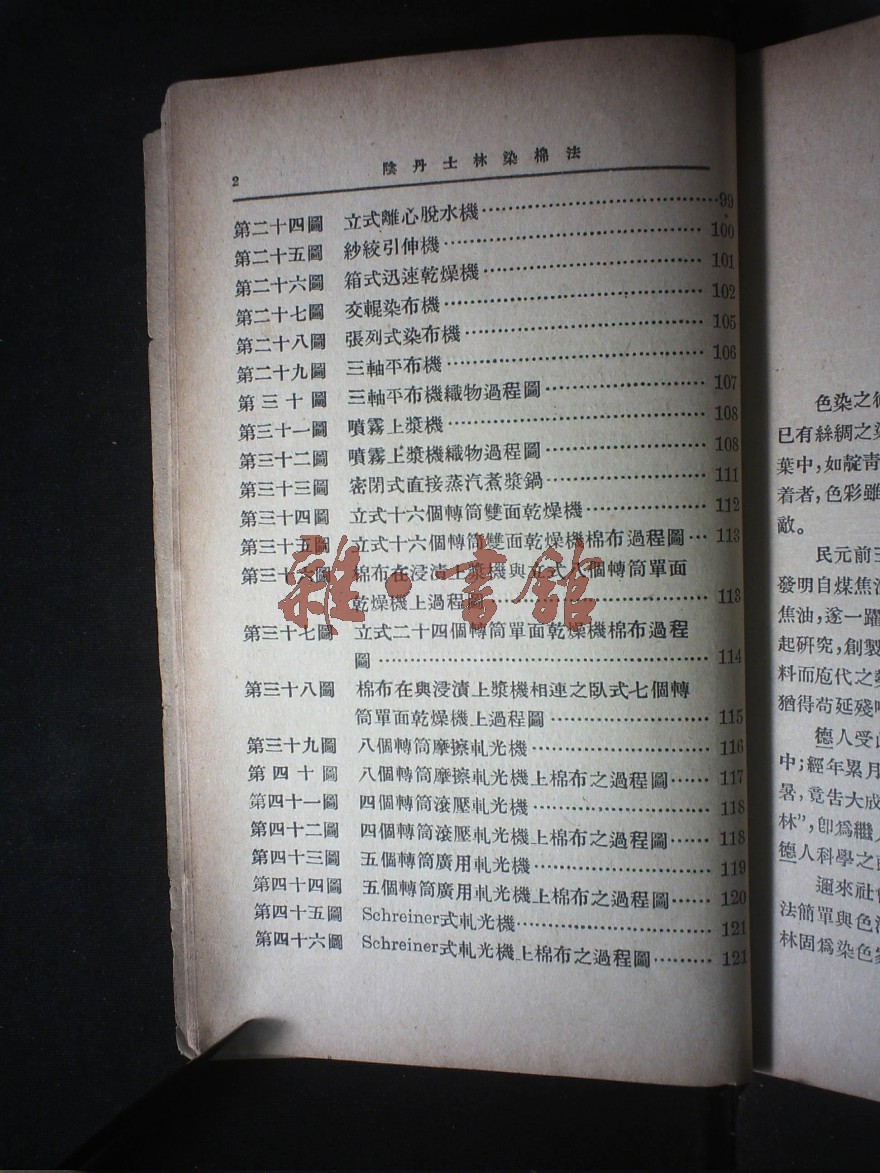 2
陰丹士林染棉法
第二十四圖 立式離心脫水機……99
第二十五圖 紗絞引伸機……100
第二十六圖 箱式迅速乾燥機……101
第二十七圖 交輥染布機……102
第二十八圖 張列式染布機……105
第二十九圖 三軸平布機……106
第三十圖 三軸平布機織物過程圖……107
第三十一圖 噴霧上漿機……108
第三十二圖 噴霧上漿機織物過程圖……108
第三十三圖 密閉式直接蒸汽煮漿鍋……111
第三十四圖 立式十六個轉筒雙面乾燥機……112
第三十五圖 立式十六個轉筒雙面乾燥機棉布過程圖…113
第三十六圖 棉布在浸漬上漿機與立式八個轉筒單面
乾燥機上過程圖……113
第三十七圖 立式二十四個轉筒單面乾燥機棉布過程
圖……114
第三十八圖 棉布在與浸漬上漿機相連之臥式七個轉
筒單面乾燥機上過程圖……115
第三十九圖 八個轉筒摩擦軋光機……116
第四十圖 八個轉筒摩擦軋光機上棉布之過程圖……117
第四十一圖 四個轉筒滾壓軋光機……118
第四十二圖 四個轉筒滾壓軋光機上棉布之過程圖……118
第四十三圖 五個轉筒廣用軋光機……119
第四十四圖 五個轉筒廣用軋光機上棉布之過程圖……120
第四十五圖 Schreiner式軋光機……121
第四十六圖 Schreiner式軋光機上棉布之過程圖……121
雜·書館
色染之術
已有絲綢之染
葉中,如靛靑
着者,色彩雖
敵。
民元前三
發明自煤焦油
焦油,遂一躍
起硏究,創製
料而庖代之
猶得苟延殘
德人受
中;經年累月
暑,竟吿大成
林”,卽爲繼
德人科學之
邇來社會
法簡單與色
林固爲染色